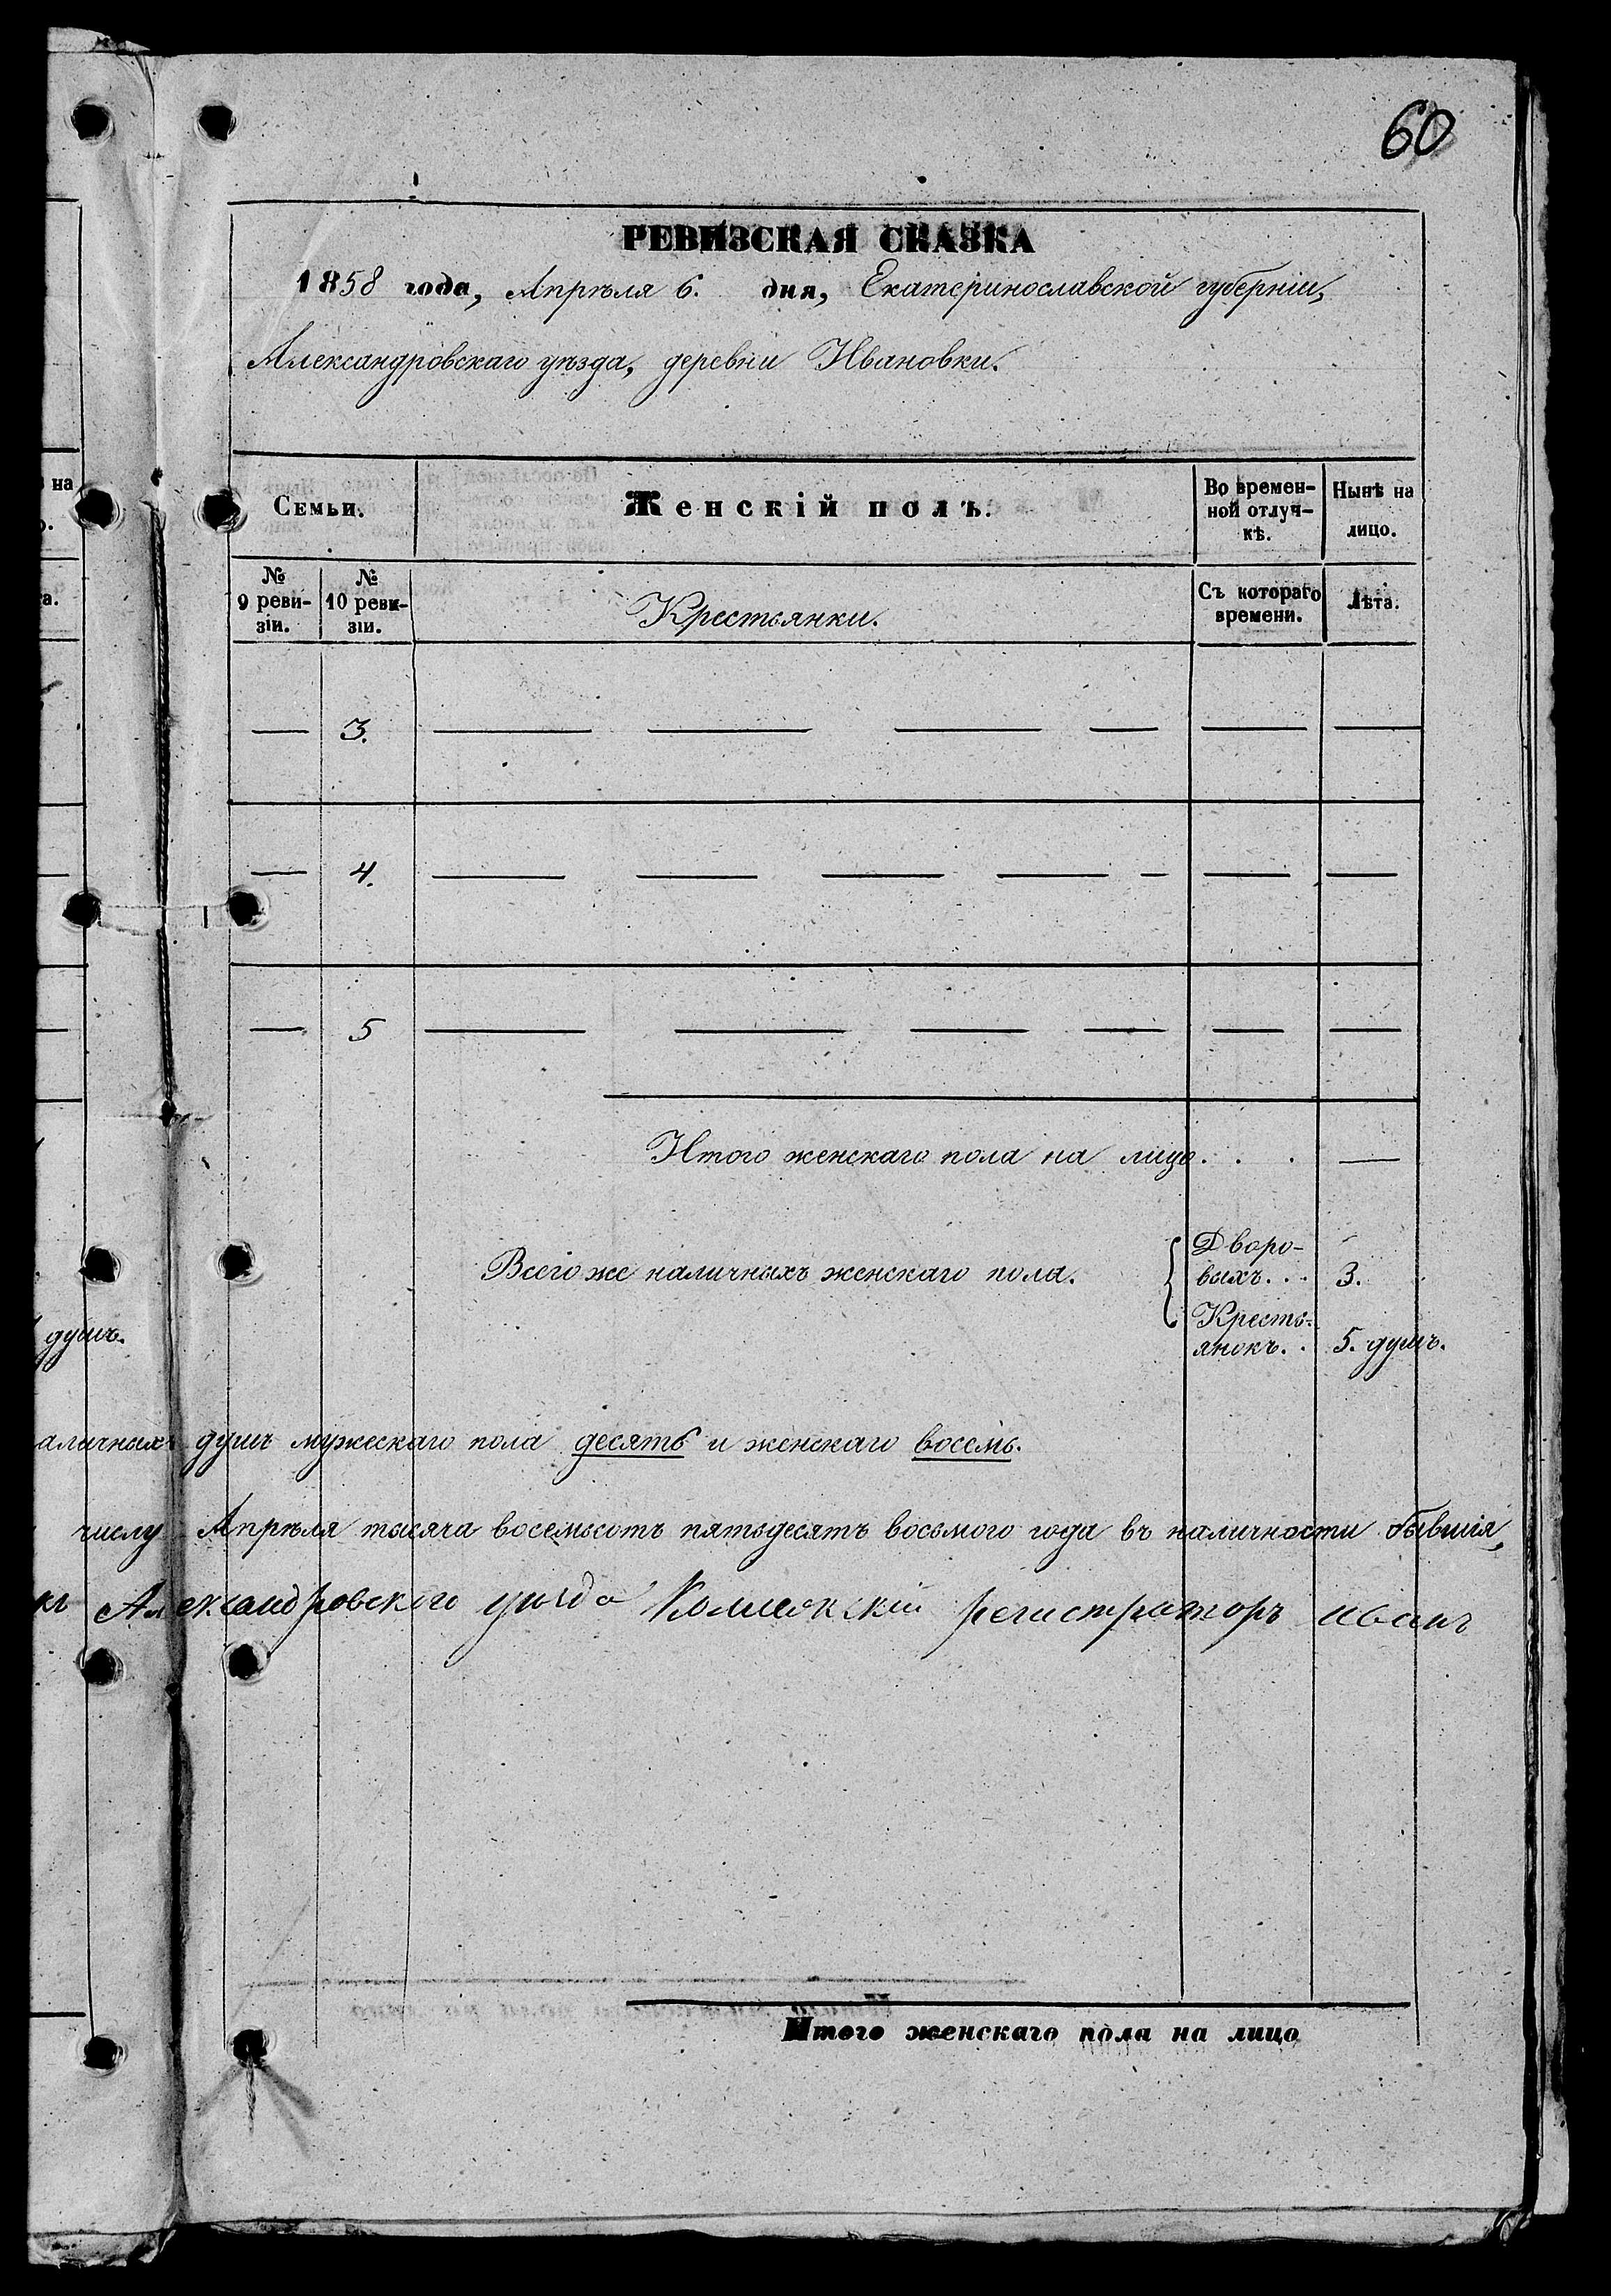 60
РЕВИЗСКАЯ СКАЗКА
1858 года, Апрѣля 6. дня, Екатеринославской губерніи,
Александровскаго уѣзда, деревни Ивановки.
на
Семьи.
Женскій полъ.
Во времен-
ной отлуч-
кѣ.
Нынѣ на
лицо.
а.
№
9 реви-
зіи.
№
10 реви-
зіи.
Крестьянки.
Съ котораго
времени.
Лѣта.
— 3. — — — — — —
— 4. — — — — — — —
— 5 — — — — — —
Итого женскаго пола на лицо . . . —
Всего же наличныхъ женскаго пола.
{ Дворо-
выхъ. . . 3.
Кресть-
янокъ. . 5. душъ.
душъ.
аличныхъ душъ мужескаго пола десять и женскаго восемь.
числу Апрѣля тысяча восемьсотъ пятьдесятъ восьмого года въ наличности бывшія,
Александровского уѣзда Коллежскій регистраторъ иванъ
Итого женскаго пола на лицо